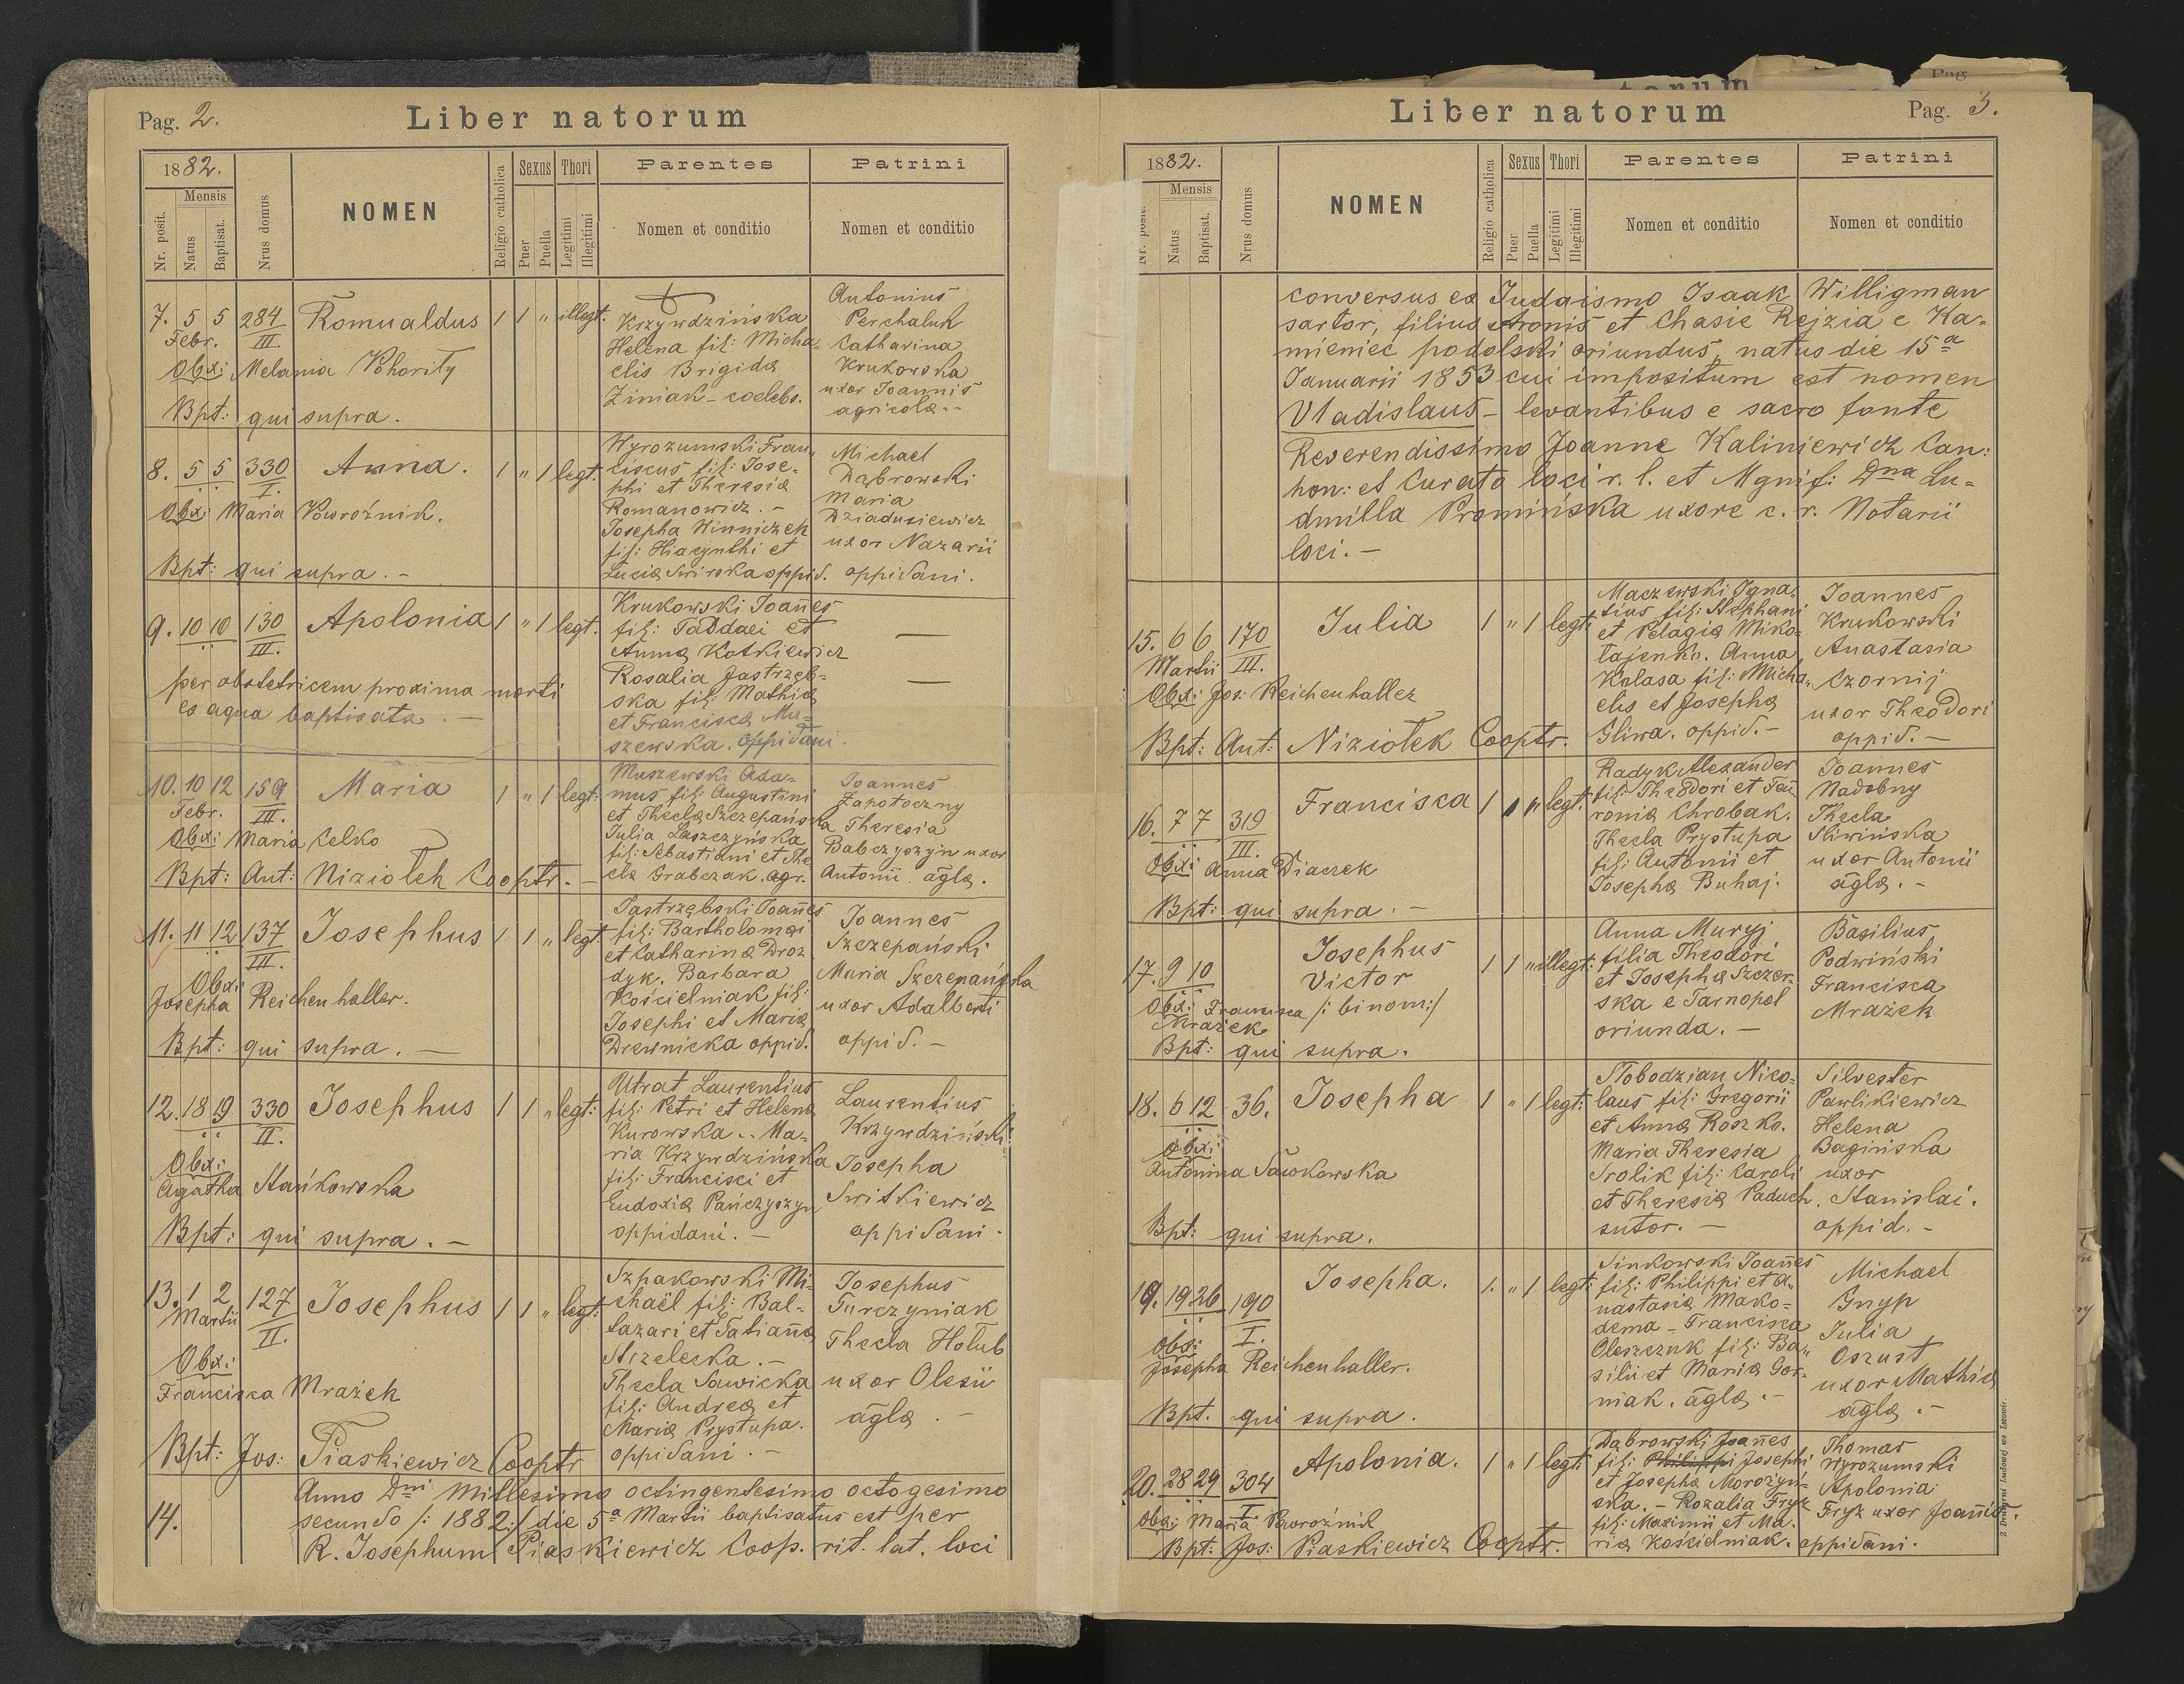 Pag. 2.
Liber natorum
1882.
Mensis
Nr. posit.
Natus
Baptisat.
Nrus domus
NOMEN
Religio catholica
Sexus
Puer
Puella
Thori
Legitimi
Illegitimi
Parentes
Nomen et conditio
Patrini
Nomen et conditio
7. 5 5 284 Romualdus 1 1 " illegt.
Febr. III.
Obx: Melania Pohorily
Bpt: qui supra.
Krzywdzińska
Helena fil: Micha„
elis Brigida
Ziniak - coelebs.
Antonius
Perchaluk
Catharina
Krukowska
uxor Joannis
agricolæ.-
8. 5 5 330 Anna. 1 " 1 legt.
I.
Obx: Maria Poworoźnik.
Bpt: qui supra.-
Wyrozumski Fran„
ciscus fil: Jose-
phi et Theresiæ
Romanowicz.-
Josepha Winniczek
fil: Hiacynthi et
Luciæ Swirska oppid.
Michael
Dąbrowski
Maria
Dziadusiewicz
uxor Nazarii
oppidani.
9. 10 10 130 Apolonia 1 " 1 legt.
III.
per obstetricem proxima morti
ex aqua baptisata.-
Krukowski Joañes
fil: Taddaei et
Annæ Kotkiewicz
Rosalia Jastrzęb-
ska fil: Mathiæ
et Franciscæ Mu-
szewska. oppidani.
10. 10 12 159 Maria 1 " 1 legt:
Febr. III.
Obx: Maria Celko
Bpt: Aut: Niziołek Cooptr.-
Muszewski Ada-
mus fil: Augustini
et Theclæ Szczepańska
Julia Laszczyńska
fil: Sebastiani et The
clæ Grabczak. agr.
Joannes
Zapotoczny
Theresia
Babczyszyn uxor
Antonii. āglæ.
11. 11 12 137 Josephus 1 1 " legt:
III.
Obx:
Josepha Reichenhaller.
Bpt: qui supra.-
Jastrzębski Joañes
fil: Bartholomæi
et Catharinæ Droz
dyk. Barbara
Kościelniak fil:
Josephi et Mariæ
Drewnicka oppid.
Joannes
Szczepański
Maria Szczepańska
uxor Adalberti
oppid.-
12. 18 19 330 Josephus 1 1 " legt:
II.
Obx:
Agatha Stańkowska
Bpt: qui supra.-
Utrat Laurentius
fil: Petri et Helenæ
Kurowska.. Ma-
ria Krzywdzińska
fil: Francisci et
Eudoxiæ Pańczyszyn
oppidani.-
Laurentius
Krzywdziński
Josepha
Switkiewicz
oppidani.
13. 1 2 127 Josephus 1 1 " legt:
Martii II.
Obx:
Francisca Mrażek
Bpt: Jos: Piaskiewicz Cooptr
Szpakowski Mi-
chaël fil: Bal-
tazari et Tatianæ
Strzelecka.-
Thecla Sawicka
fil: Andreæ et
Mariæ Prystupa.
oppidani.-
Josephus
Turczyniak
Thecla Holub
uxor Olesii
āglæ.-
14.
Anno Dni Millesimo octingentesimo octogesimo
secundo /: 1882:/ die 5a Martii baptisatus est per
R. Josephum Piaskiewicz Coop. rit. lat. loci
Liber natorum
Pag. 3.
1882.
Mensis
Nr. posit.
Natus
Baptisat.
Nrus domus
NOMEN
Religio catholica
Sexus
Puer
Puella
Thori
Legitimi
Illegitimi
Parentes
Nomen et conditio
Patrini
Nomen et conditio
conversus ex Judaismo Isaak Willigman
sartor, filius Aronis et Chasie Rejzia e Ka-
mieniec podolski oriundus, natus die 15a
Januarii 1853 cui impositum est nomen
Vladislaus - levantibus e sacro fonte
Reverendissimo Joanne Kaliniewicz Can:
hon: et Curato loci r. l. et Mgnif: Dna Lu-
dmilla Promińska uxore c. r. Notarii
loci.-
15. 6 6 170 Julia 1 " 1 legt:
Martii III.
Obx: Jos: Reichenhaller
Bpt: Ant: Niziołek Cooptr.
Maczewski Igna-
tius fil: Stephani
et Pelagiæ Miko-
łajenko. Anna
Kolasa fil: Micha„
elis et Josephæ
Gliwa. oppid.-
Joannes
Krukowski
Anastasia
Czornij
uxor Theodori
oppid.-
16. 7 7 319 Francisca 1 1 " legt:
III.
Obx: Anna Diaczek
Bpt: qui supra.-
Radyk Alexander
fil: Theodori et Feu-
roniæ Chrobak.
Thecla Prystupa
fil: Antonii et
Josephæ Buhaj.
Joannes
Nadobny
Thecla
Śliwińska
uxor Antonii
āglæ.-
17. 9 10 Josephus 1 1 " illegt:
Victor
/: binom:/
Obx: Francisca
Mrażek
Bpt: qui supra.
Anna Muryj
filia Theodori
et Josephæ Szczer-
ska e Tarnopol
oriunda.-
Basilius
Podwiński
Francisca
Mrażek
18. 6 12 36. Josepha 1 " 1 legt:
Obx:
Antonina Sawkowska
Bpt: qui supra.
Słobodzian Nico-
laus fil: Gregorii
et Annæ Roszko.
Maria Theresia
Srolik fil: Caroli
et Theresiæ Paduch.
sutor.-
Silvester
Pawlikiewicz
Helena
Bagińska
uxor
Stanislai.
oppid.-
19. 19 26 190 Josepha. 1. " 1 legt:
I.
Obx:
Josepha Reichenhaller.
Bpt. qui supra.
Sinkowski Joañes
fil: Philippi et A„
nastasiæ Mako-
dema - Francisca
Oleszczuk fil: Ba„
silii et Mariæ Gor-
niak. āglæ.-
Michael
Gnyp
Julia
Oszust
uxor Mathiæ
āglæ.-
20. 28 29 304 Apolonia. 1 " 1 legt:
I.
Obx: Maria Poworoźnik
Bpt: Jos: Piaskiewicz Cooptr.
Dąbrowski Joañes
fil: Philippi Josephi
et Josephæ Morozyń-
ska.- Rozalia Fryz
fil: Maximi et Ma-
riæ Kościelniak.
Thomas
Wyrozumski
Apolonia
Fryz uxor Joañis.
oppidani.
Z Drukarni ludowej we Lwowie.